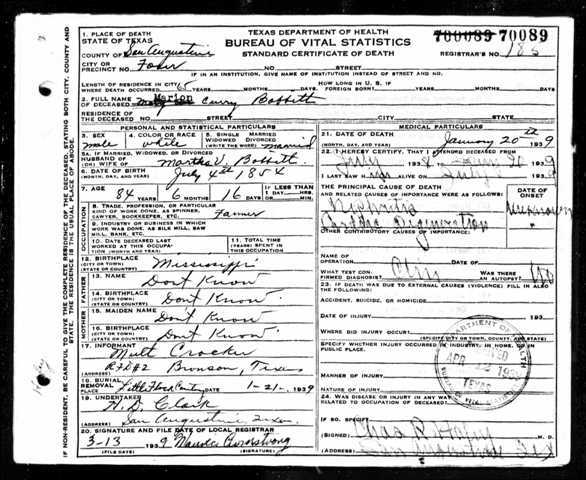 TEXAS DEPARTMENT OF HEALTH
BUREAU OF VITAL STATISTICS
STANDARD CERTIFICATE OF DEATH
700089 70089
REGISTRAR'S NO. 186
1. PLACE OF DEATH
STATE OF TEXAS
COUNTY OF San Augustine
CITY OR PRECINCT NO. NO. STREET
IF IN AN INSTITUTION, GIVE NAME OF INSTITUTION INSTEAD OF STREET AND NO.
LENGTH OF RESIDENCE IN CITY WHERE DEATH OCCURRED. 6 YEARS MONTHS DAYS
HOW LONG IN U. S. IF FOREIGN BORN? YEARS MONTHS DAYS
2. FULL NAME OF DECEASED Marion Curry Bobbitt
RESIDENCE OF THE DECEASED NO. STREET CITY STATE
PERSONAL AND STATISTICAL PARTICULARS
3. SEX male
4. COLOR OR RACE white
5. SINGLE MARRIED WIDOWED DIVORCED (WRITE THE WORD) married
5A. IF MARRIED, WIDOWED, OR DIVORCED
HUSBAND OF (OR) WIFE OF Martha V. Bobbitt
6. DATE OF BIRTH (MONTH, DAY, AND YEAR) July 4th 1854
7. AGE 84 YEARS 6 MONTHS 16 DAYS
IF LESS THAN 1 DAY HRS. MIN.
8. TRADE, PROFESSION, OR PARTICULAR KIND OF WORK DONE, AS SPINNER, SAWYER, BOOKKEEPER, ETC. Farmer
9. INDUSTRY OR BUSINESS IN WHICH WORK WAS DONE, AS SILK MILL, SAW MILL, BANK, ETC.
10. DATE DECEASED LAST WORKED AT THIS OCCUPATION (MONTH AND YEAR)
11. TOTAL TIME (YEARS) SPENT IN THIS OCCUPATION
12. BIRTHPLACE (CITY OR TOWN) (STATE OR COUNTRY) Mississippi
FATHER
13. NAME Dont Know
14. BIRTHPLACE (CITY OR TOWN) (STATE OR COUNTRY) Dont Know
MOTHER
15. MAIDEN NAME Dont Know
16. BIRTHPLACE (CITY OR TOWN) (STATE OR COUNTRY) Dont Know
17. INFORMANT Mutt Crocker
ADDRESS RFD #2 Bronson, Texas
18. BURIAL REMOVAL PLACE DATE 1-21-1939
19. UNDERTAKER H. D. Clark
ADDRESS San Augustine Texas
20. SIGNATURE AND FILE DATE OF LOCAL REGISTRAR
3-13 1939 Maurice Armstrong
(FILE DATE) (SIGNATURE)
MEDICAL PARTICULARS
21. DATE OF DEATH (MONTH, DAY, AND YEAR) January 20th 1939
22. I HEREBY CERTIFY, THAT I ATTENDED DECEASED FROM
July 1938 TO 20 1939
I LAST SAW H ALIVE ON
THE PRINCIPAL CAUSE OF DEATH AND RELATED CAUSES OF IMPORTANCE WERE AS FOLLOWS:
DATE OF ONSET
Degeneration Unknown
OTHER CONTRIBUTORY CAUSES OF IMPORTANCE:
NAME OF OPERATION DATE OF
WHAT TEST CONFIRMED DIAGNOSIS? WAS THERE AN AUTOPSY? No
23. IF DEATH WAS DUE TO EXTERNAL CAUSES (VIOLENCE) FILL IN ALSO THE FOLLOWING:
ACCIDENT, SUICIDE, OR HOMICIDE
DATE OF INJURY 193
WHERE DID INJURY OCCUR? (SPECIFY CITY OR TOWN, COUNTY, AND STATE)
SPECIFY WHETHER INJURY OCCURRED IN INDUSTRY, IN HOME, OR IN PUBLIC PLACE.
MANNER OF INJURY
NATURE OF INJURY
24. WAS DISEASE OR INJURY IN ANY WAY RELATED TO OCCUPATION OF DECEASED?
IF SO, SPECIFY
(SIGNED) M. D.
(ADDRESS)
DEPARTMENT OF HEALTH
APR 1939
TEXAS